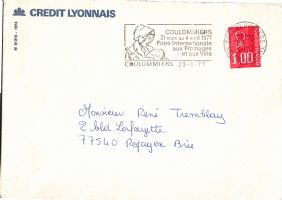 CREDIT LYONNAIS
COULOMMIERS
31 mars au 4 avril 1977
Foire Internationale
aux Fromages
et aux Vins
COULOMMIERS 23-3-77
1.00
Monsieur René Tremblay
2 bld Lafayette
77540 Rozay en Brie